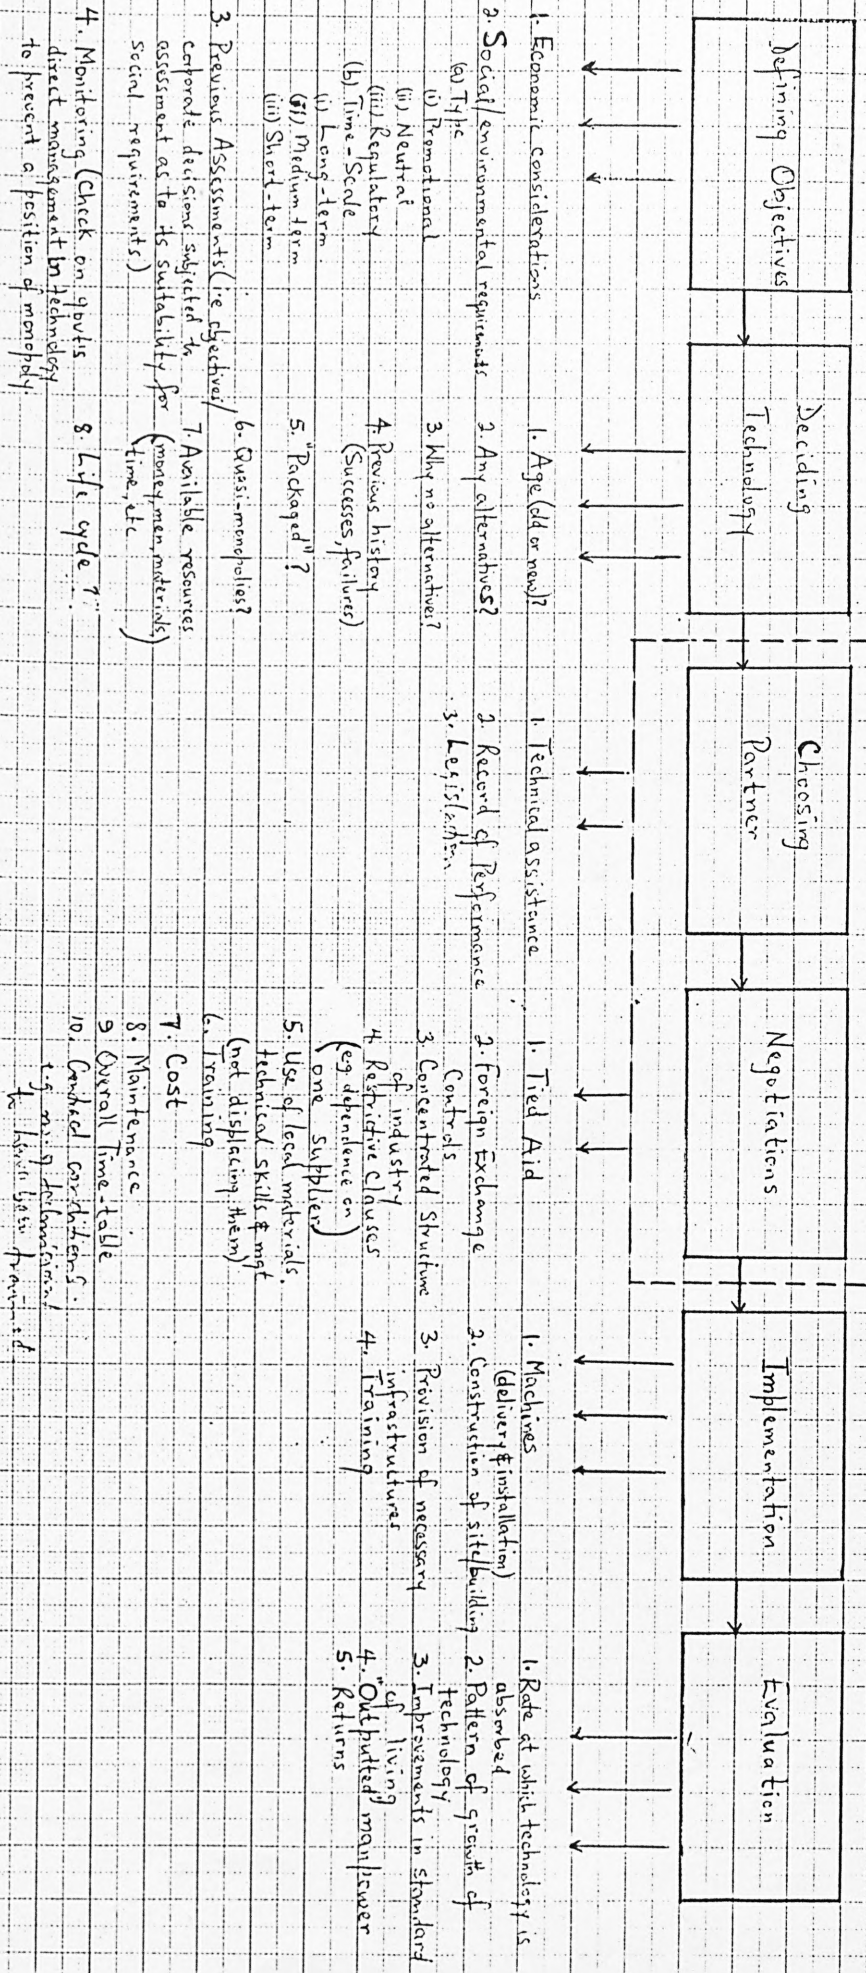 Defining Objectives
1. Economic considerations
2. Social/environmental requirements
(a) Type
(i) Promotional
(ii) Neutral
(iii) Regulatory
(b) Time-Scale
(i) Long-term
(ii) Medium term
(iii) Short-term
3. Previous Assessments (i.e objectives/
corporate decisions subjected to
assessment as to its suitability for
social requirements.)
4. Monitoring (Check on govt's
direct management in technology
to prevent a position of monopoly.
Deciding
Technology
1. Age (old or new)?
2. Any alternatives?
3. Why no alternatives?
4. Previous history
(Successes, failures)
5. "Packaged"?
6. Quasi-monopolies?
7. Available resources
(money, men, materials,
time, etc)
8. Life cycle?
Choosing
Partner
1. Technical assistance
2. Record of Performance
3. Legislation
Negotiations
1. Tied Aid
2. Foreign Exchange
Controls
3. Concentrated Structure
of industry
4. Restrictive Clauses
(eg. dependence on
one supplier)
5. Use of local materials,
technical skills & mgt
(not displacing them)
6. Training
7. Cost
8. Maintenance
9. Overall Time-table
10. Contract conditions.
e.g.
to have been trained
Implementation
1. Machines
(delivery & installation)
2. Construction of site/building
3. Provision of necessary
infrastructures
4. Training
Evaluation
1. Rate at which technology is
absorbed
2. Pattern of growth of
technology
3. Improvements in standard
of living
4. "Outputted" man/power
5. Returns